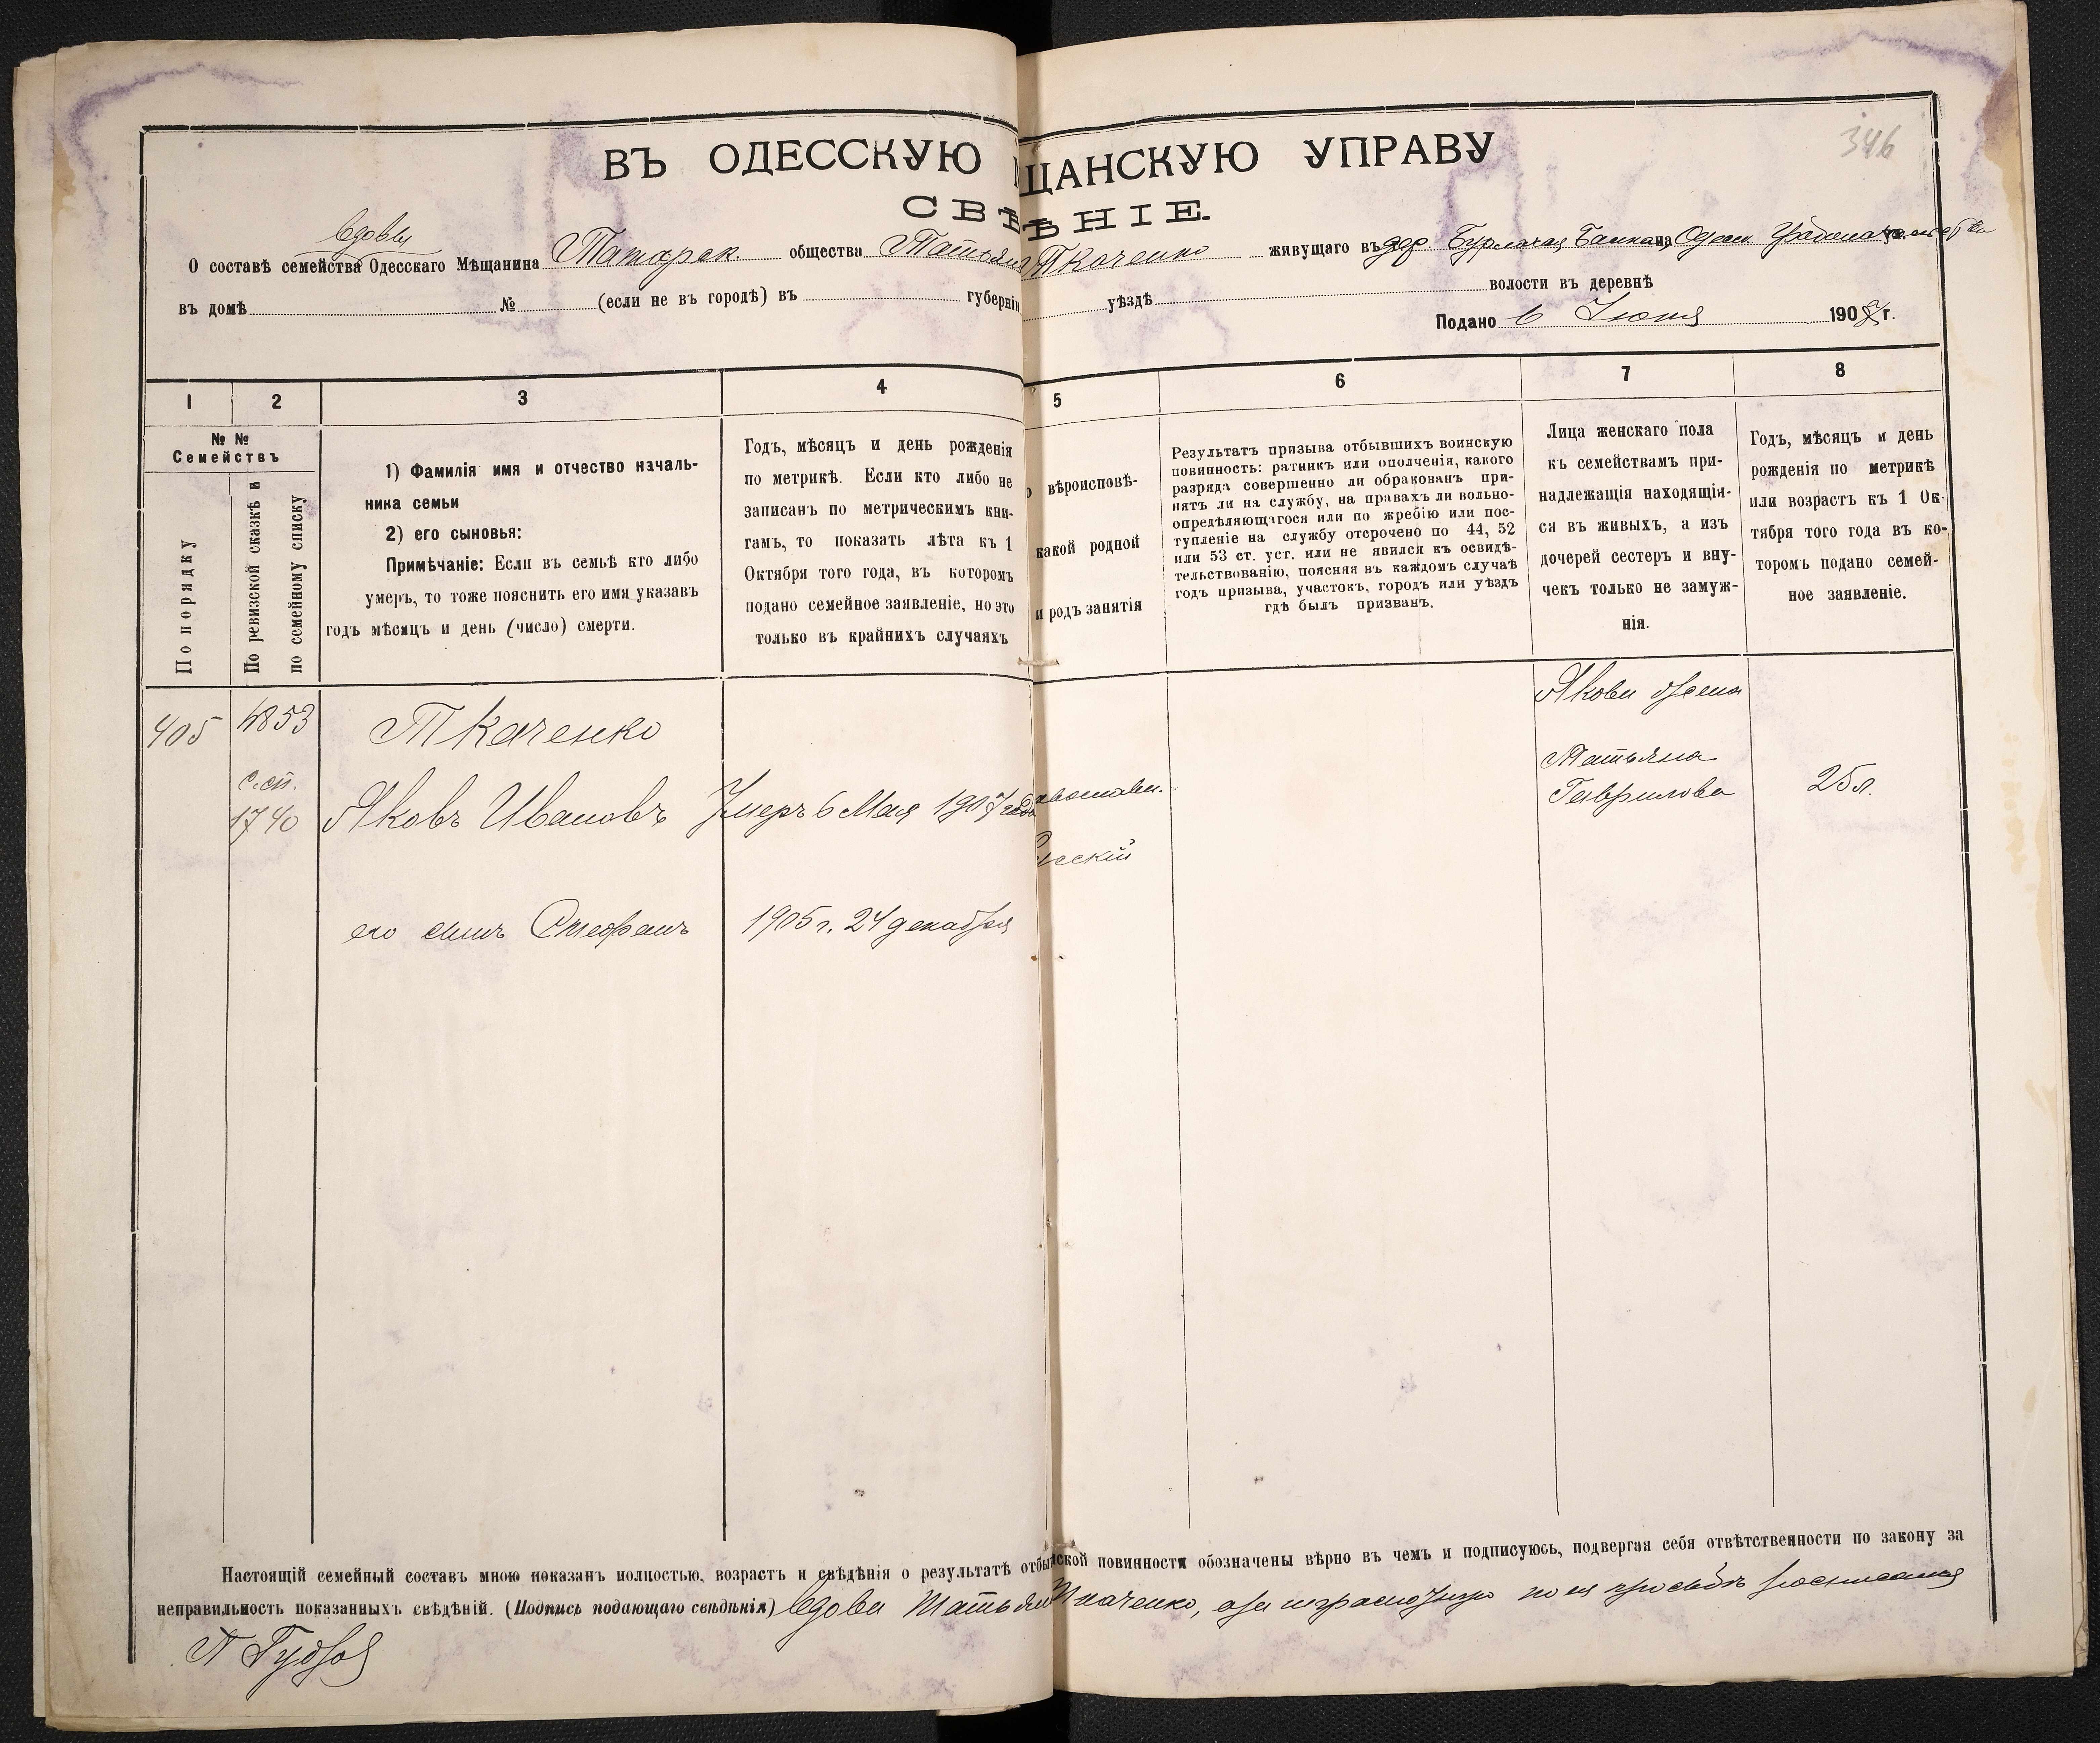 346
ВЪ ОДЕССКУЮ ЩАНСКУЮ УПРАВУ
СВѢДѢНІЕ.
вдовы
О составѣ семейства Одесскаго Мѣщанина Татарск. общества Татьяны Ткаченко живущаго въ дер. Бурлачая Балка на Одесск. Градоначальства
въ домѣ № (если не въ городѣ) въ губерніи уѣздѣ волости въ деревнѣ
Подано 6 Іюня 1907 г.
1 2 3 4 5 6 7 8
№ №
Семействъ
По порядку
По ревизской сказкѣ и
по семейному списку
1) Фамилія имя и отчество началь-
ника семьи
2) его сыновья:
Примѣчаніе: Если въ семьѣ кто либо
умеръ, то тоже пояснить его имя указавъ
годъ мѣсяцъ и день (число) смерти.
Годъ, мѣсяцъ и день рожденія
по метрикѣ. Если кто либо не
записанъ по метрическимъ кни-
гамъ, то показать лѣта къ 1
Октября того года, въ которомъ
подано семейное заявленіе, но это
только въ крайнихъ случаяхъ
вѣроисповѣ-
какой родной
и родъ занятія
Результатъ призыва отбывшихъ воинскую
повинность: ратникъ или ополченія, какого
разряда совершенно ли обракованъ при-
нятъ ли на службу, на правахъ ли вольно-
опредѣляющагося или по жребію или пос-
тупленіе на службу отсрочено по 44, 52
или 53 ст. уст. или не явился къ освидѣ-
тельствованію, поясняя въ каждомъ случаѣ
годъ призыва, участокъ, городъ или уѣздъ
гдѣ былъ призванъ.
Лица женскаго пола
къ семействамъ при-
надлежащія находящія-
ся въ живыхъ, а изъ
дочерей сестеръ и вну-
чекъ только не замуж-
нія.
Годъ, мѣсяцъ и день
рожденія по метрикѣ
или возрастъ къ 1 Ок-
тября того года въ ко-
торомъ подано семей-
ное заявленіе.
405
4853
с. сп.
1740
Ткаченко
Яковъ Ивановъ
Умеръ 6 Мая 1907 года
авославн.
усскій
его сынъ Стефанъ
1905 г. 24 декабря
Якова жена
Татьяна
Гаврилова
25 л.
Настоящій семейный составъ мною показанъ полностью, возрастъ и свѣдѣнія о результатѣ отбы нской повинности обозначены вѣрно въ чемъ и подписуюсь, подвергая себя отвѣтственности по закону за
неправильность показанныхъ свѣдѣній. (Подпись подающаго свѣдѣнія) вдова Татьяна Ткаченко, а за неграмотную по ея просьбѣ росписался
П Гудзь